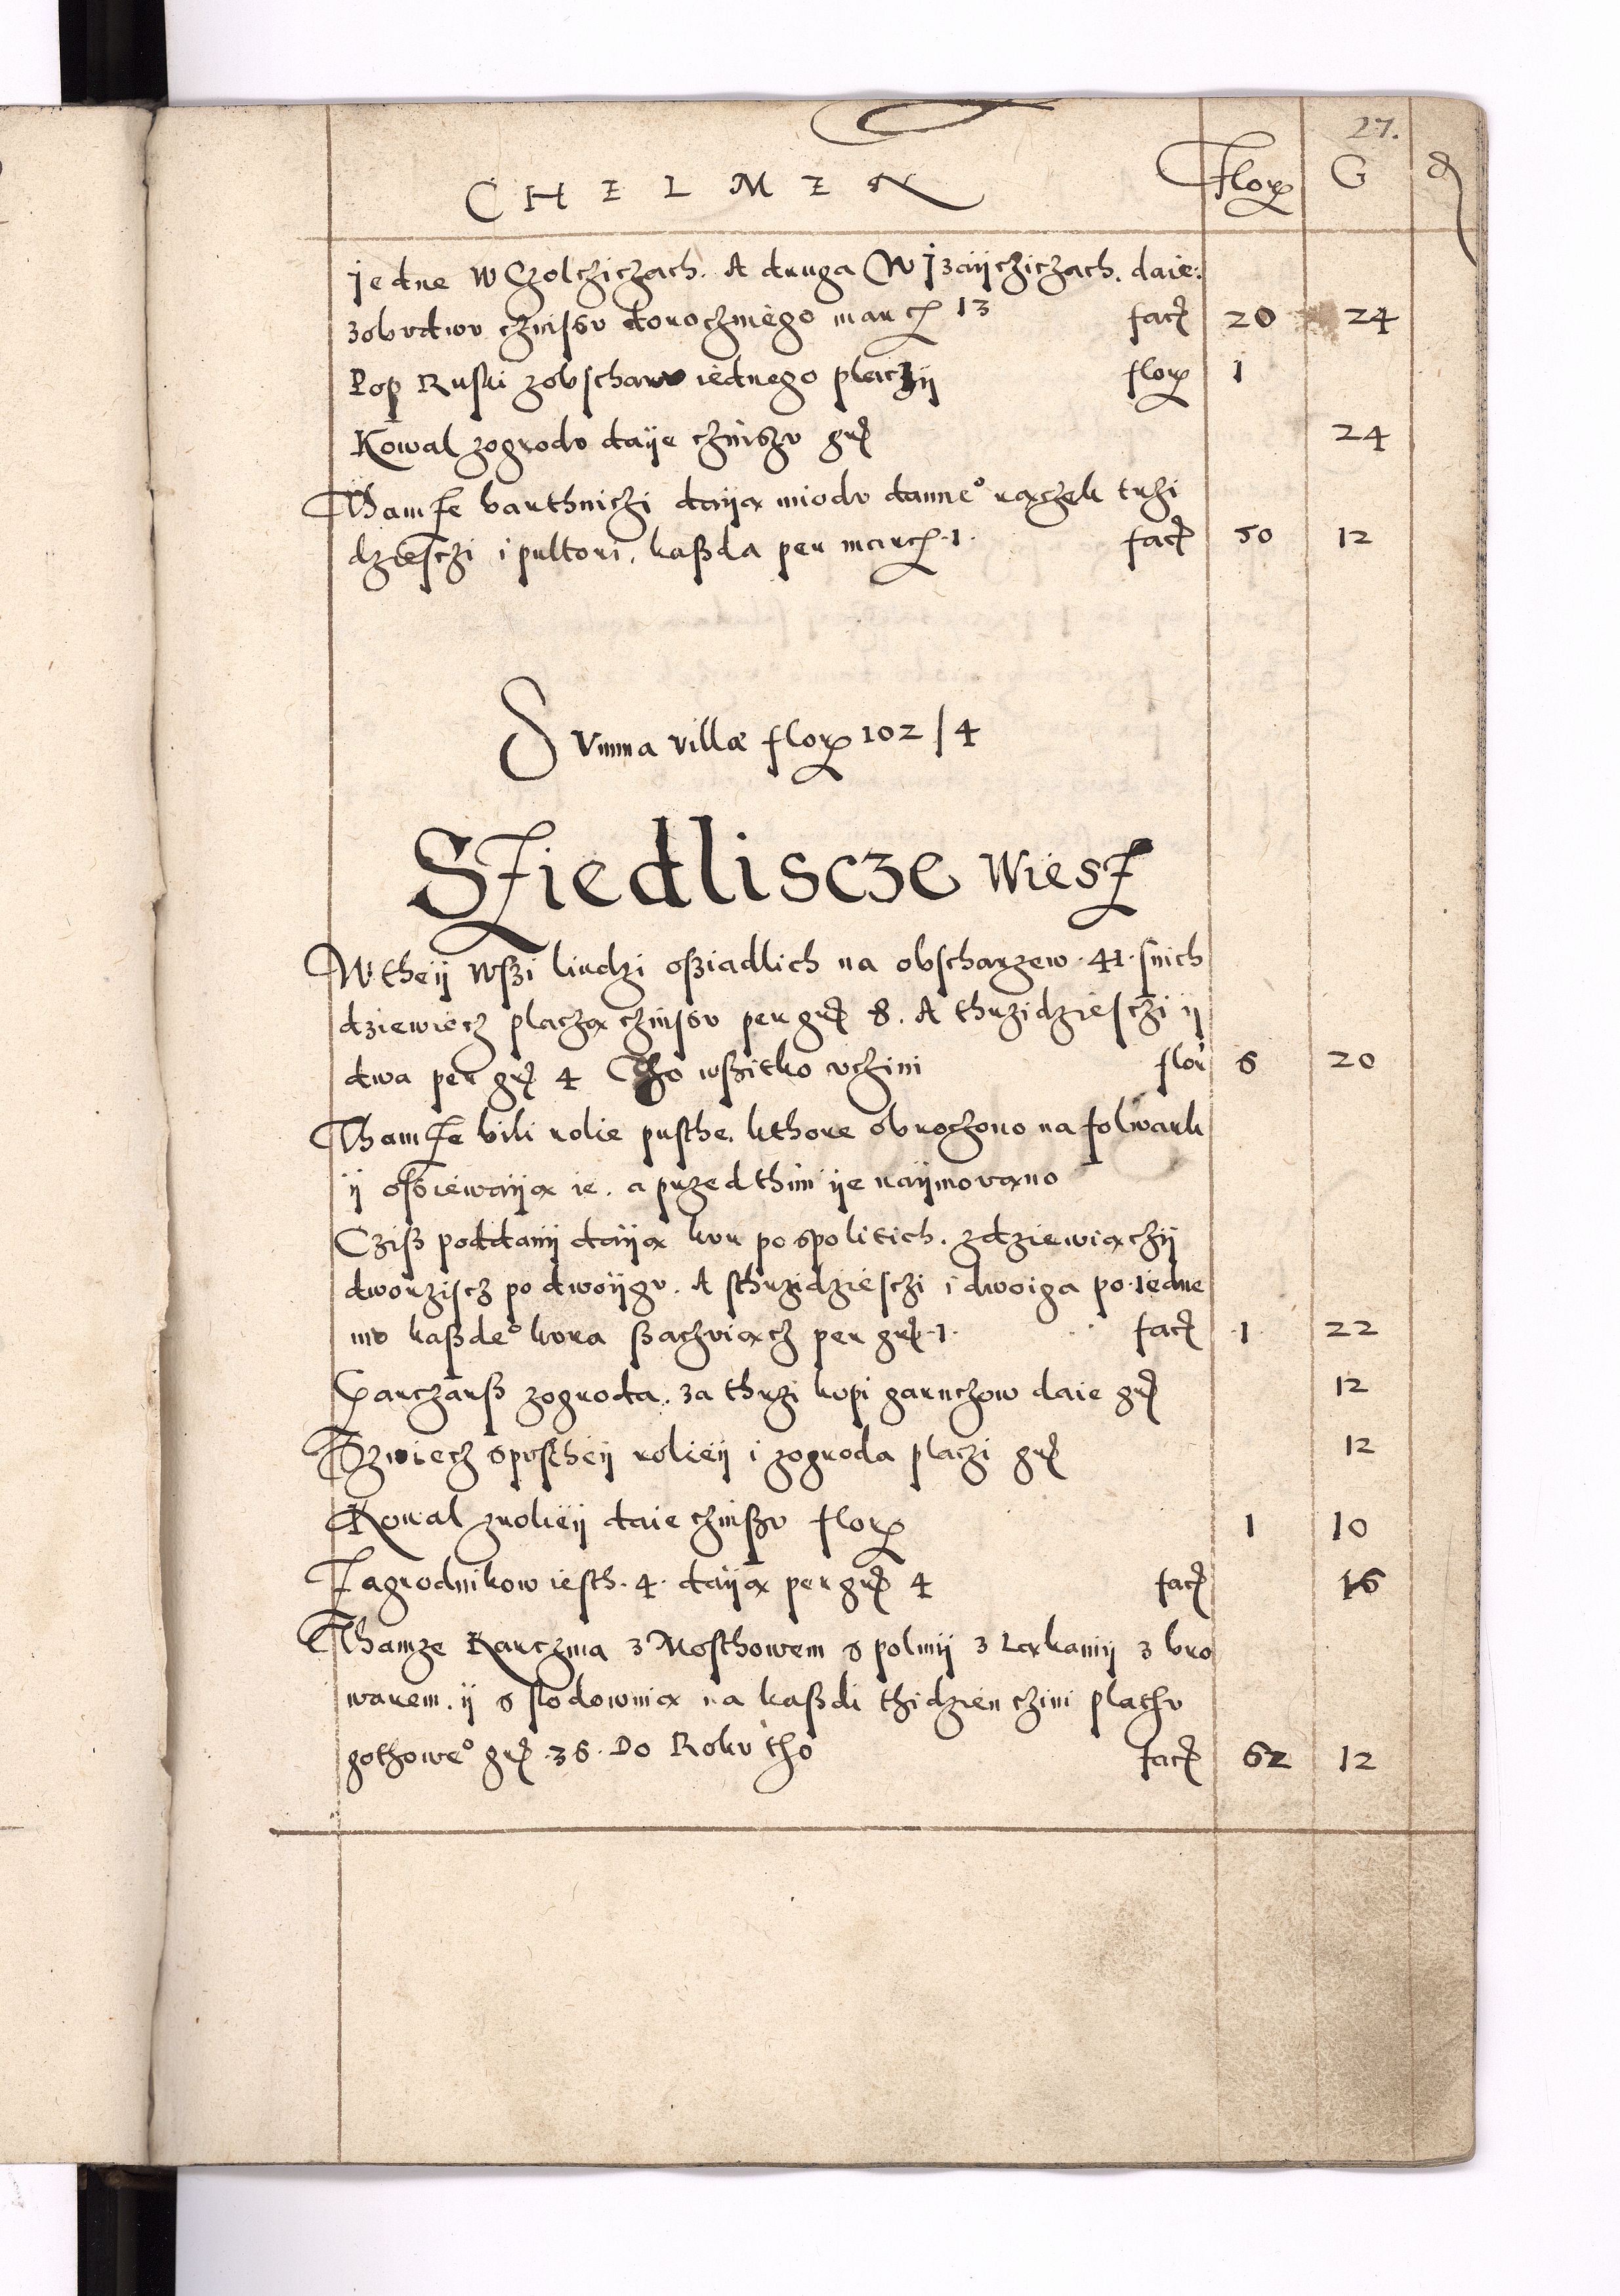 27.
CHELMEN Flor G d
jedne w Czolcziczach. A druga W Jzaijcziczach. daie:
zobudwu czinssv dorocznie̋go març 13 facᷝ 20 24
Pop Ruski zobscharv iednego placzij flor 1
Kowal zogrodv daije czinszv grᷝ 24
Thamze barthniczi daija miodv danne° raczek trzi
dziesczi i pultori, kaßda per març .1. facᷝ 50 12
Summa villæ flor 102 / 4
Sziedliscze Wiesz
W theij Wszi liudzi osziadlich na obscharzew .41. snich
dziewiecz placza czinssv per grᷝ 8. A thrzidziesczi ij
dwa per grᷝ 4 Tho wßitko vczini flor 6 20
Thamze bili rolie pusthe, kthore obroczono na folwark
ij ossiewaija ie. a przed thim ije naijmovano
Cziß poddanij daija kur pospolitich. zdziewiaczij
dworziscz po dwoijgv. A sthrzidziesczi i dwoiga po iedne
mv kaßde° kura ßaczviacz per grᷝ .1. facᷝ .1. 22
Garczarß zogroda. za thrzi kopi garnczow daie grᷝ 12
Szwiecz spustheij rolieij i zogroda placzi grᷝ 12
Kowal zrolieij daie czinßv flor 1 10
Zagrodnikow iesth .4. daija per grᷝ 4 facᷝ 16
Thamze Karczma z Mosthowem s polmij z Lakamij z bro
warem. ij s slodownia na kaßdi thidzien czini plathv
gothowe° grᷝ .36. Do Rokv tho facᷝ 62 12